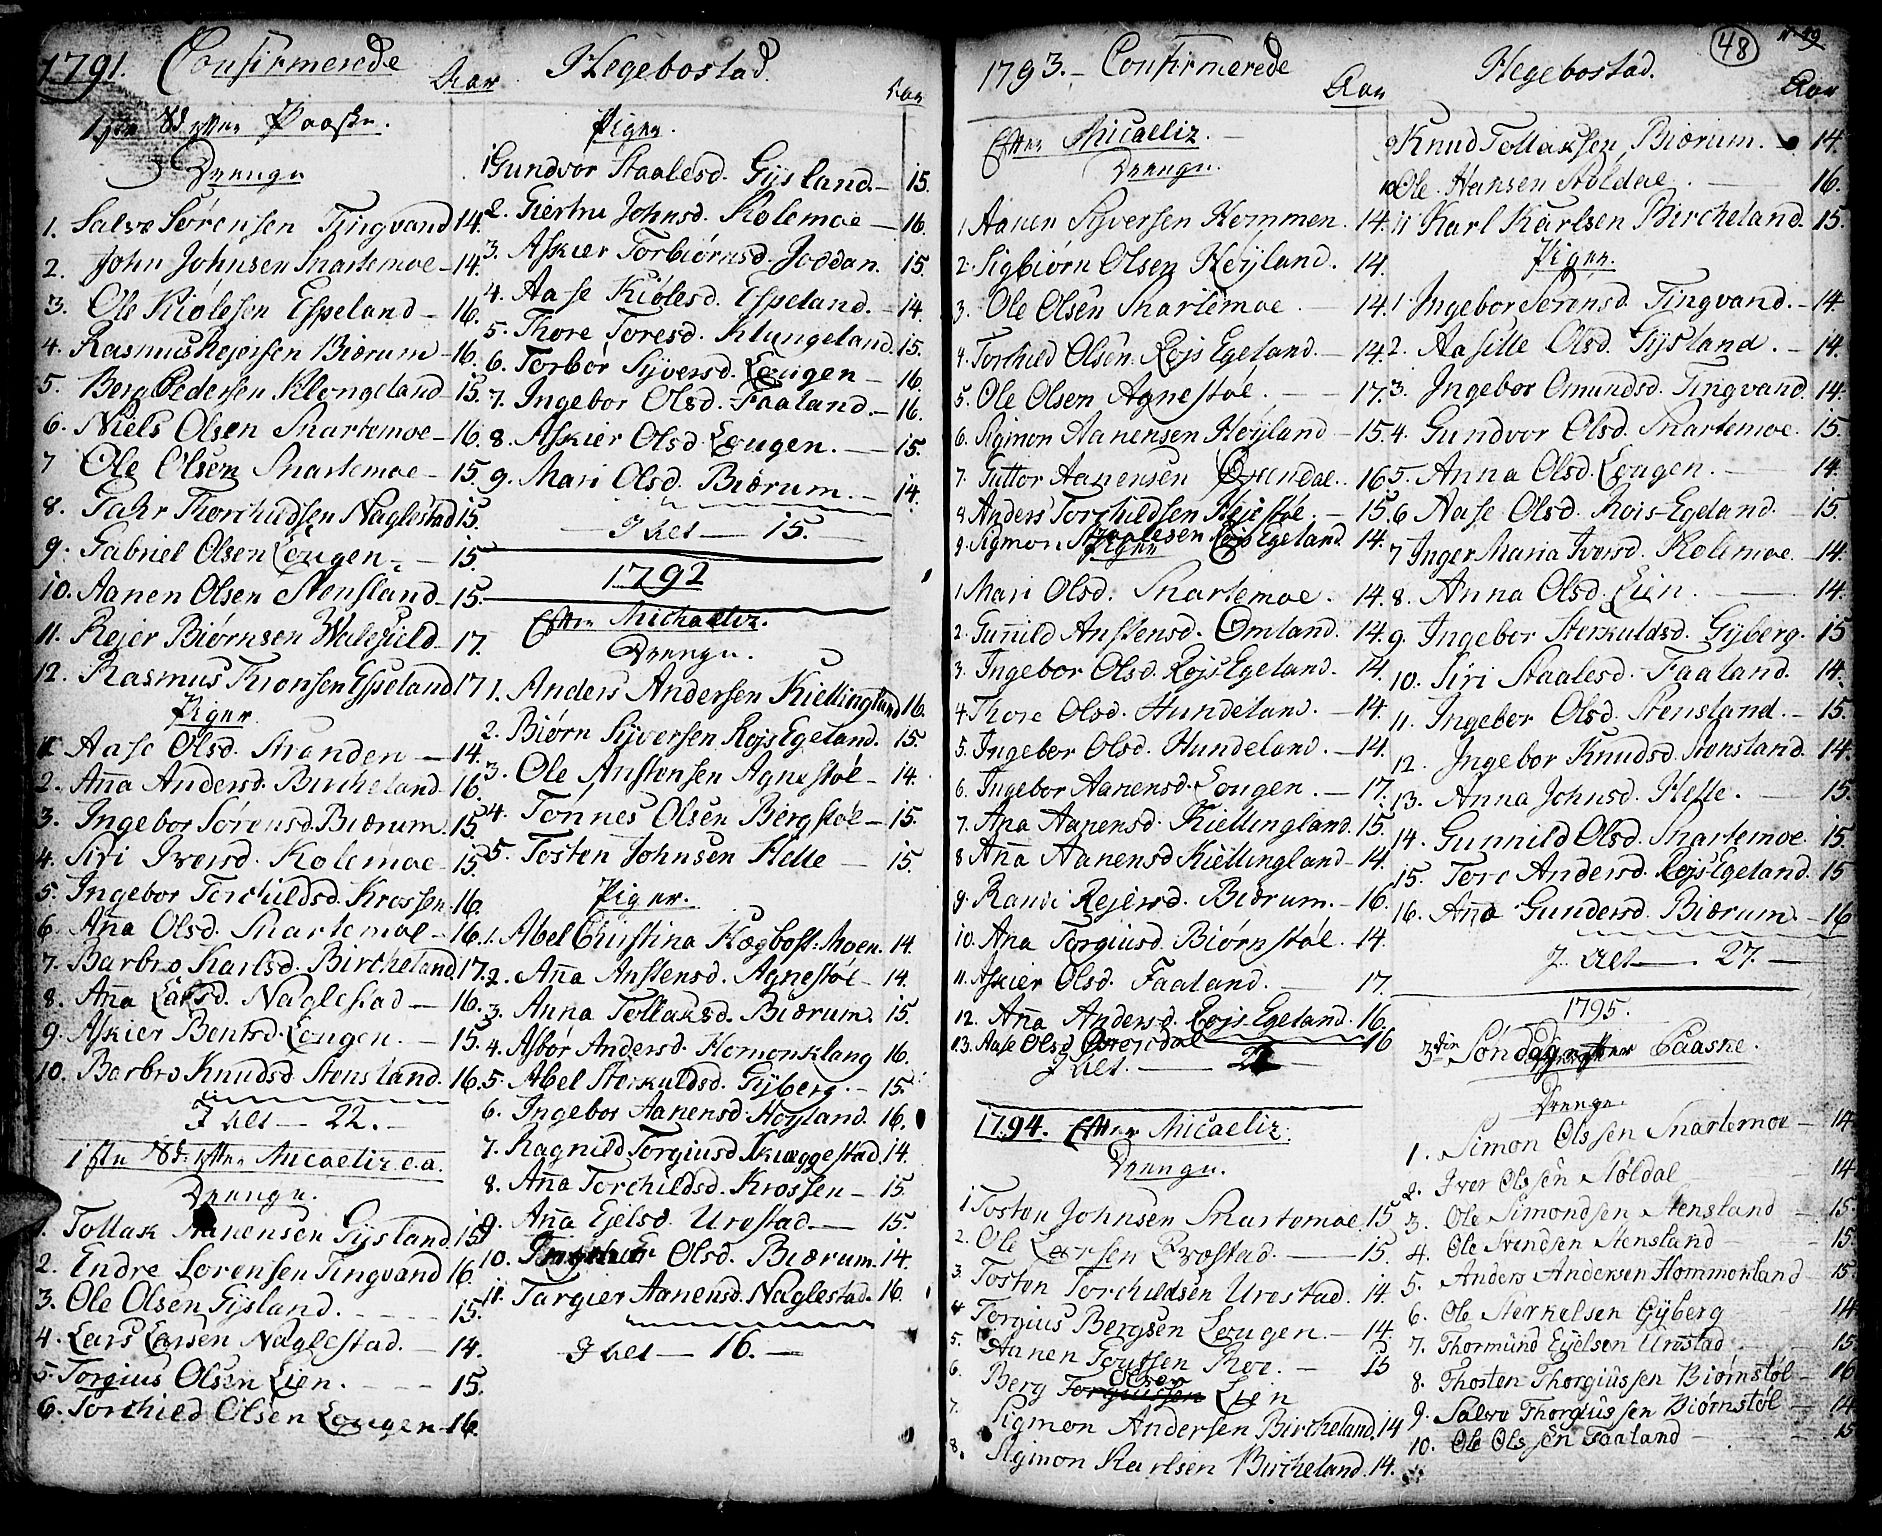 1791. Confirmerede
Aar
Hegebostad.
Aar
1ste Sd. efter Paaske.
Drenge
1. Salve Sørensen Tingvand 14.
2. John Johnsen Snartemoe - 14.
3. Ole Kiølesen Espeland - 16.
4. Rasmus Rejersen Biærum - 16.
5. Berg Pedersen Klongeland 15.
6. Niels Olsen Snartemoe - 16.
7 Ole Olsen Snartemoe - 15.
8. Torchildsen Naglestad 15.
9. Gabriel Olsen Lougen - 15.
10. Aanen Olsen Stensland - 15.
11. Rejer Biørnsen 17.
12. Rasmus Espeland 17
Piger
1. Aase Olsd. Stranden - 14.
2. Aña Andersd. Bircheland 16.
3. Ingebor Sørensd. Biærum. 15.
4. Siri Iversd. Kolemoe - 15
5. Ingebor Torchildsd. Krossen 16.
6. Aña Olsd. Snartemoe - 16.
7. Barbro Karlsd. Bircheland 17.
8. Aña Larsd. Naglestad - 16.
9. Askier Bentsd. Lougen. - 15.
10. Barbro Knudsd Stensland. 16.
I alt - 22. -
1ste Sd. efter Micaelis e.a.
Drenge.
1. Tollak Aanensen Gysland. 15.
2. Endre Sørensen Tingvand 16.
3. Ole Olsen Gysland. 15.
4. Lars Larsen Naglestad. - 14.
5. Torgius Olsen Lien. 15.
6. Torchild Olsen Lougen - 16.
Piger.
1 Gundvor Staalesd. Gysland - 15.
2. Giertru Johnsd. Kolemoe - 16.
3. Askier Torbiørnsd. Joddan. 15.
4. Aase Kiølesd. Espeland. - 14.
5. Thore Toresd. Klungeland. 15.
6. Torbor Syversd. Lougen - 16.
7. Ingebor Olsd. Faaland. - 16.
8. Askier Olsd Lougen. - 15.
9. Mari Olsd. Biærum. - 14.
I alt - 15. -
1792
Efter Michaeliz.
Drenge.
1. Anders Andersen Kiellingland 16.
2. Biørn Syversen RojsEgeland. 15.
3. Ole Anstensen Agnestøl - 14.
4. Tønnes Olsen Bergstøl - 15.
5. Tosten Johnsen Helle - 15.
Piger.
1. Abel Christina Hægbost: Moen. 14.
2. Aña Anstensd. Agnestøl - 14.
3. Anna Tollaksd. Biærum. 15.
4. Asbor Andersd. Homonklang 16.
5. Abel Sterkuldsd. Gyberg. - 15.
6. Ingebor Aanensd. Hoyland. 16.
7. Ragnild Torgiusd Skuæggestad. 14.
8. Aña Torchildsd. Krossen - 15.
9. Aña Ejelsd. Urestad. - 15.
10. Olsd. Biærum. 14.
11. Targier Aanensd. Naglestad. 16.
I alt - 16. -
1793. - Confirmerede
Aar
Hegebostad.
48
Aar
Efter Micaeliz. -
Drenge.
1. Aanen Syversen Hommen. 14.
2. Sigbiørn Olsen Høyland. 14.
3. Ole Olsen Snartemoe. - 14.
4. Torchild Olsen RojsEgeland. - 14.
5. Ole Olsen Agnestøl. - 17.
6. Sigmon Aanensen Høyland - 15.
7. Guttor Aanensen 16.
8. Anders Torchildsen - 15.
9. Sigmon Staalesen RojsEgeland 14.
Piger
1 Mari Olsd. Snartemoe. 14.
2. Guñild Anstensd. Omland. 14.
3. Ingebor Olsd. RojsEgeland. 14.
4 Thore Olsd. Hundeland. - 14.
5. Ingebor Olsd. Hundeland. - 14.
6. Ingebor Aanensd. Lougen. - 17.
7. Aña Aanensd. Kiellingland. 15.
8 Aña Aanensd Kiellingland - 14.
9. Randi Rejersd. Biærum. - 16.
10. Ana Torgiusd. Biørnstøl. 14.
11. Askier Olsd. Faaland. - 17.
12. Aña Andersd. RojsEgeland. 16.
13. Aase Olsd 16
I alt. - 22
1794. Efter Micaeliz.
Drenge.
1 Tosten Johnsen Snartemoe. 15
2. Ole Larsen - 15.
3. Tosten Torchildsen Urestad. 14.
4 Torgius Bergsen Lougen. - 14.
5. Aanen 15
6. Berg Olsen Lien
7. Sigmon Andersen Bircheland. 14
8. Sigmon Karlsen Bircheland. 14.
9 Knud Tollaksen Biærum. - 14.
10 Ole Hansen Støldal. - 16.
11 Karl Karlsen Bircheland. 15.
Piger.
1. Ingebor Sørensd. Tingvand. - 14.
2. Aasille Olsd. Gysland. - 14.
3. Ingebor Omundsd. Tingvand. 14.
4. Gundvor Olsd. Snartemoe. 15.
5. Anna Olsd. Lougen. - 14.
6 Aase Olsd. Rois-Egeland. - 15
7 Inger Maria Iversd. Kolemoe. - 14.
8. Anna Olsd. Lien. - 14.
9. Ingebor Sterkuldsd. Gyberg. 15
10. Siri Staalesd. Faaland. 14.
11. Ingebor Olsd. Stensland. - 15.
12. Ingebor Knudsd. Stensland. 14.
13. Anna Johnsd. Helle. - 15.
14. Gunnild Olsd. Snartemoe. 15.
15. Tore Andersd. RojsEgeland. 15
16. Aña Gundersd. Biærum. - 16
I alt - 27. -
1795.
3die Søndag efter Paaske.
Drenge.
1. Simon Olssen Snartemoe - 14
2. Iver Olssen Støldal - 14
3. Ole Simondsen Stensland - 15.
4. Ole Svendsen Stensland - 15.
5. Anders Andersen Hommonland - 15.
6. Ole Sterkelsen Gyberg - 14
7. Thormund Eyelsen Urestad - 15.
8. Thosten Thorgiussen Biørnstøl - 16
9. Salve Thorgiussen Biørnstøl - 14
10. Ole Olssen Faaland - 15